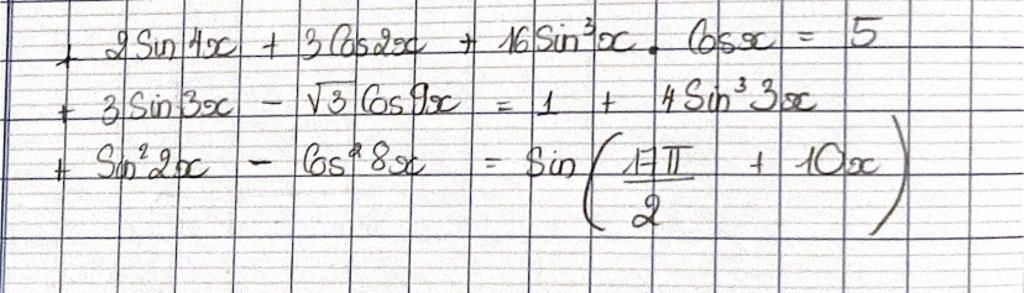 + 2 Sin 4x + 3 Cos 2x + 16 Sin³x . Cos x = 5
+ 3 Sin 3x - √3 Cos 9x = 1 + 4 Sin³ 3x
+ Sin² 2x - Cos² 8x = Sin ( 17π/2 + 10x )